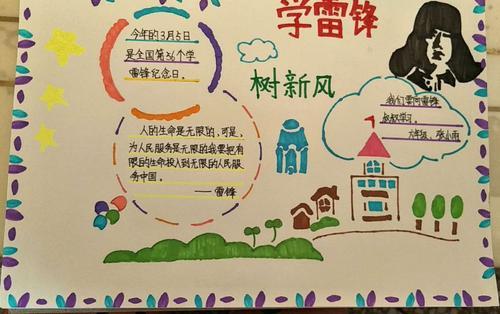 学雷锋
树新风
今年的3月5日
是全国第56个学
雷锋纪念日。
人的生命是无限的,可是,
为人民服务是无限的我要把有
限的生命投入到无限的人民服
务中国。
——雷锋
我们要向雷锋
叔叔学习。
六年级、张小雨